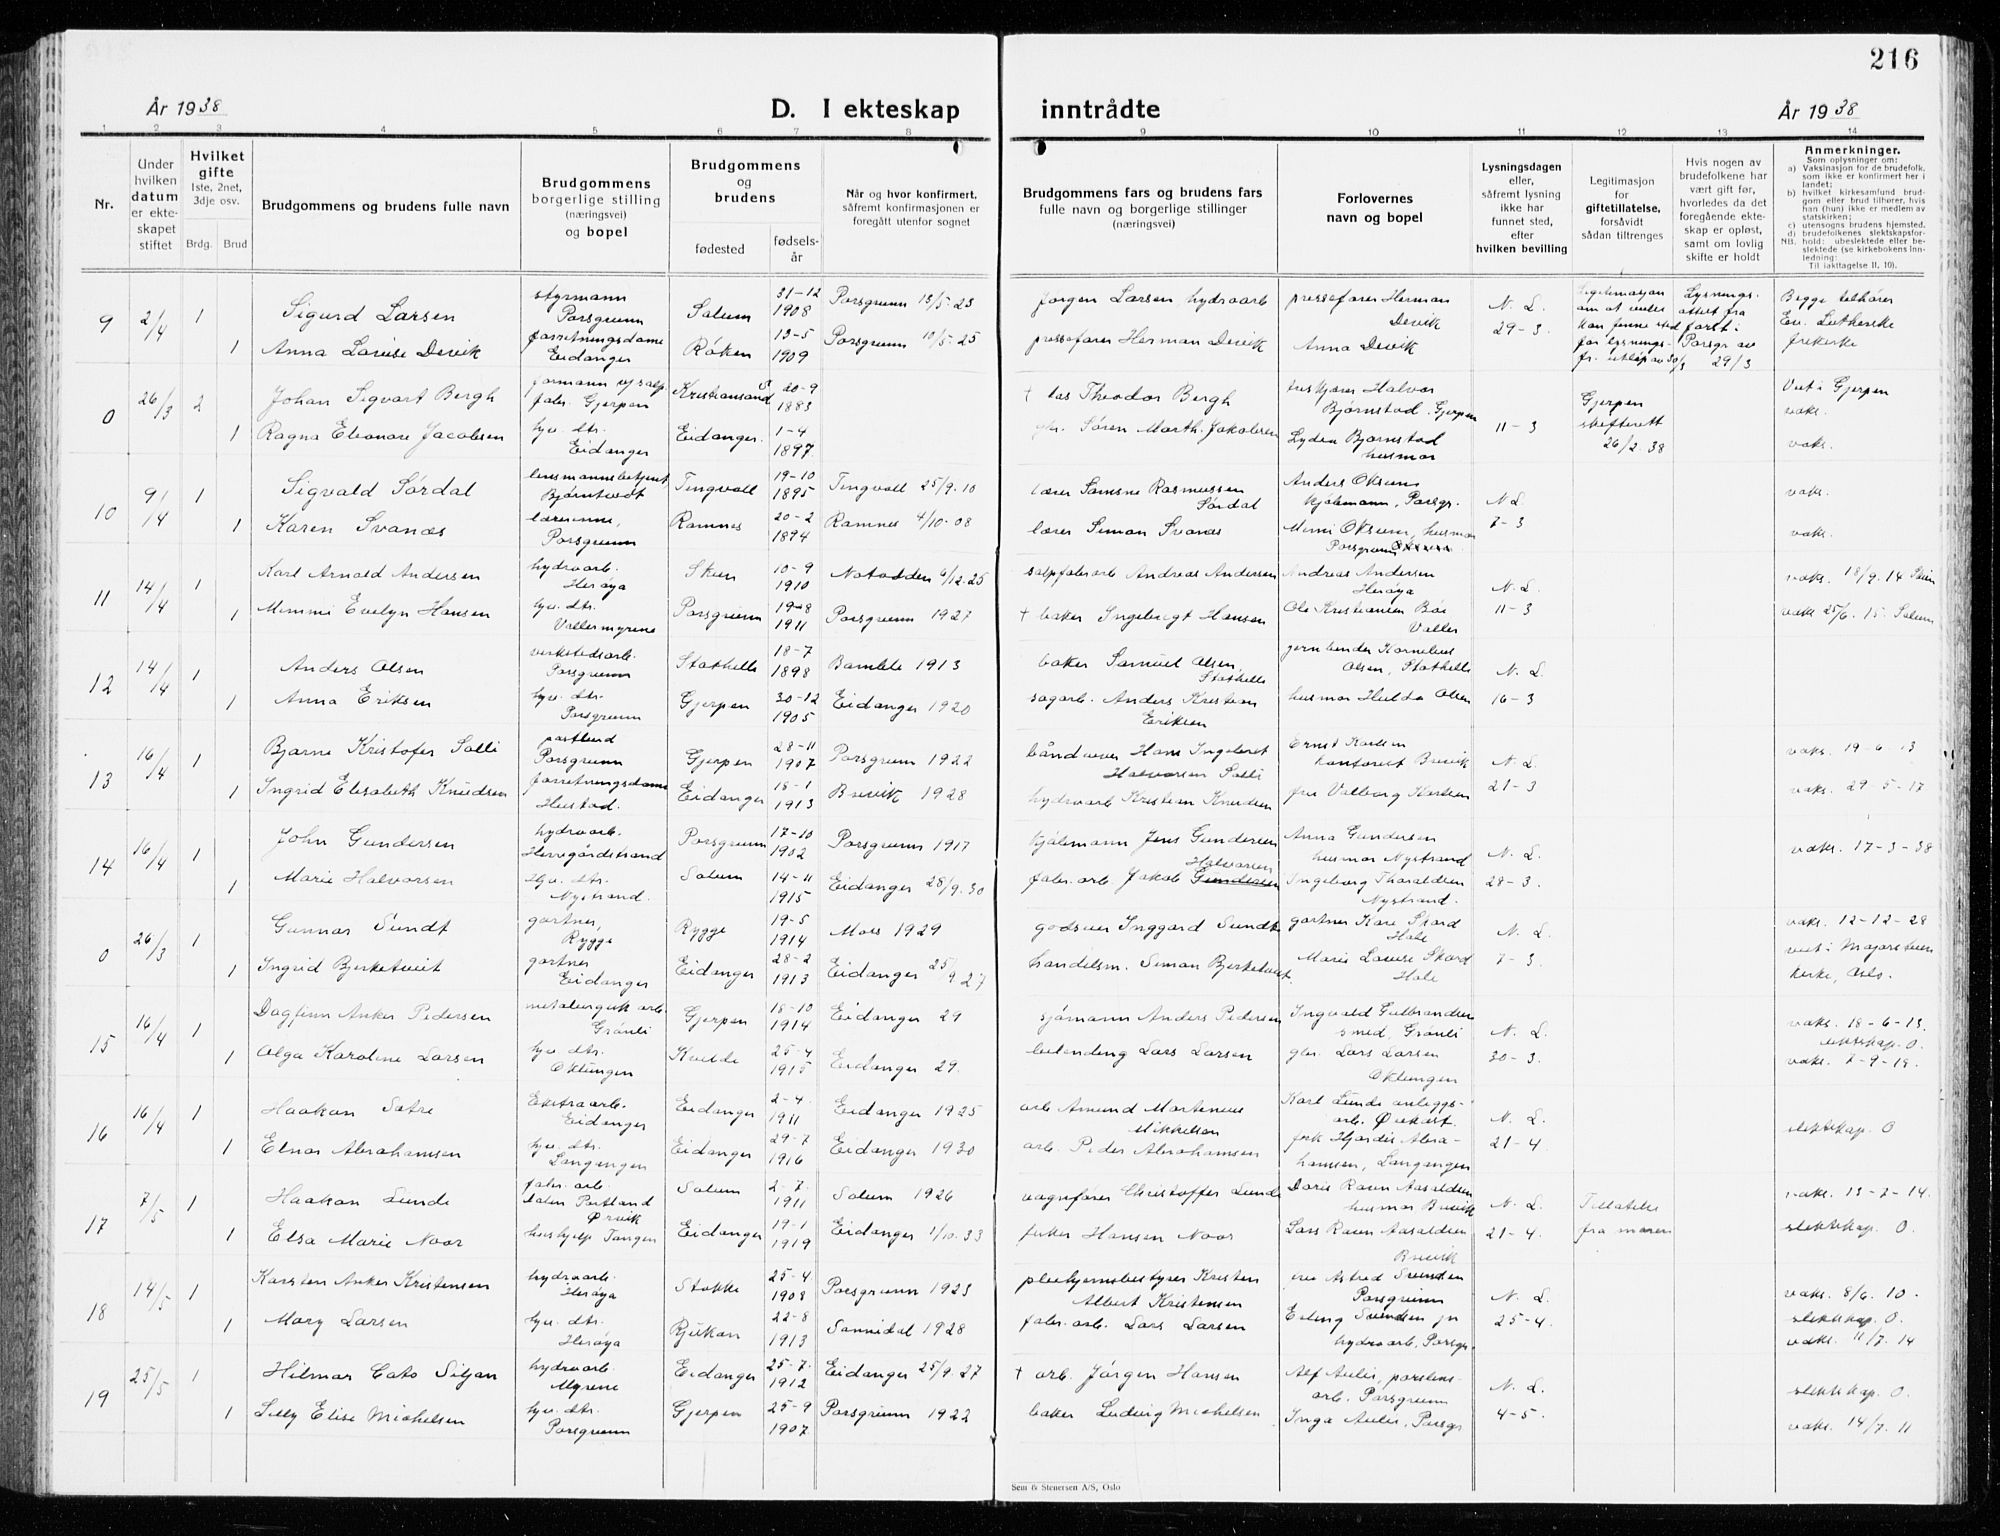 216
År 1938
D. I ekteskap inntrådte
År 1938
1 2 3 4 5 6 7 8 9 10 11 12 13 14
Nr.
Under hvilken datum er ekteskapet stiftet
Hvilket gifte 1ste, 2net, 3dje osv.
Brdg. Brud
Brudgommens og brudens fulle navn
Brudgommens borgerlige stilling (næringsvei) og bopel
Brudgommens og brudens
fødested
fødselsår
Når og hvor konfirmert, såfremt konfirmasjonen er foregått utenfor sognet
Brudgommens fars og brudens fars fulle navn og borgerlige stillinger (næringsvei)
Forlovernes navn og bopel
Lysningsdagen eller, såfremt lysning ikke har funnet sted, efter hvilken bevilling
Legitimasjon for giftetillatelse, forsåvidt sådan tiltrenges
Hvis nogen av brudefolkene har vært gift før, hvorledes da det foregående ekteskap er opløst, samt om lovlig skifte er holdt
Anmerkninger.
Som oplysninger om:
a) Vaksinasjon for de brudefolk, som ikke er konfirmert her i landet;
b) hvilket kirkesamfund brudgom eller brud tilhører, hvis han (hun) ikke er medlem av statskirken;
c) utensogns brudens hjemsted.
d) brudefolkenes slektskapsforhold: ubeslektede eller beslektede (se kirkebokens innledning:
NB. Til iakttagelse II, 10).
9 2/4 1 Sigurd Larsen styrmann Porsgrunn Solum 31-12 1908 Porsgrunn 13/5-23 Jørgen Larsen, hydroarb pressefører Herman Devik N. L. 29-3. Begge tilhører Ev. Lutherske frikirke
1 Anna Lovise Devik forretningsdame Eidanger Røken 13-5 1909 Porsgrunn 10/5-25 pressefører Herman Devik Anna Devik
0 26/3 2 Johan Sigvart Bergh formann v/ salp. fabr. Gjerpen Kristiansand S 20-9 1883 † los Theodor Bergh Halvor Bjørnstad, Gjerpen 11-3 Gjerpen skifterett 26/2.38 Viet i Gjerpen vaks.
1 Ragna Eleonore Jacobsen hjv. dtr. Eidanger Eidanger. 1-4 1897. gbr. Søren Marth. Jakobsen Lydia Bjørnstad husmor vaks.
10 9/4 1 Sigvald Sørdal lensmannsbetjent Bjørntvedt Tingvoll 19-10 1895 Tingvoll 25/9.10 lærer Samsne Rasmussen Sørdal Anders Oksum kjøbmann, Porsgr. N L 7-3 vaks.
1 Karen Svanæs lærerinne, Porsgrunn Ramnes 20-2 1894 Ramnes 4/10-08 lærer Simon Svanæs Mimi Oksum, husmor Porsgrunn vaks.
11 14/4 1 Karl Arnold Andersen hydroarb. Herøya Skien 10-9 1910 Notodden 6/12.25 salpfabr arb Andreas Andersen Andreas Andersen Herøya N. L. 11-3 vaks. 18/9.14 Skien
1 Mimmi Evelyn Hansen hjv. dtr. Vallermyrene Porsgrunn 19-8 1911 Porsgrunn 1927 † baker Ingebregt Hansen Ole Kristiansen Bøe Valler vaks 25/6.15. Solum
12 14/4 1 Anders Olsen verkstedsarb. Porsgrunn Stathelle 18-7 1898 Bamble 1913 baker Samuel Olsen, Stathelle jernbinder Kornelius Olsen, Stathelle N. L. 16-3
1 Anna Eriksen hjv. dtr. Porsgrunn Gjerpen 30-12 1905 Eidanger 1920 sagarb. Anders Kristian Eriksen husmor Hulda Olsen
13 16/4 1 Bjarne Kristofer Solli postbud Porsgrunn Gjerpen 28-11 1907 Porsgrunn 1922 Hans Ingebret Halvorsen Solli Ernst Karlsen kontorist Brevik N. L. 21-3 vaks. 19-6-13
1 Ingrid Elisabeth Knudsen forretningsdame Heistad. Eidanger 18-1 1913 Brevik 1928 hydroarb Kristian Knudsen fru Valborg Karlsen vaks. 29-5-17
14 16/4 1 John Gundersen hydroarb. Herregårdstrand Porsgrunn 17-10 1902 Porsgrunn 1917 kjøbmann Jens Gundersen Anna Gundersen husmor Nystrand N. L. 28-3. vaks. 17-3-38
1 Marie Halvorsen Hjv. dtr. Nystrand. Solum 14-11 1915 Eidanger 28/9.30 fabr. arb. Jakob Halvorsen Ingeborg Thoraldsen Nystrand.
0 26/3 1 Gunnar Sundt gartner, Rygge Rygge 19-5 1914 Moss 1929 godseier Inggard Sundt gartner Kåre Skard Hole N. L. 7-3. vaks. 12-12-28
1 Ingrid Bjerketveit gartner Eidanger Eidanger 28-2 1913 Eidanger 25/9 27 handelsm. Simon Bjerketveit. Marie Louise Skard Hole viet i Majorstuen kirke, Oslo.
15 16/4 1 Dagfinn Anker Pedersen metallurgisk arb. Grønli Gjerpen 18-10 1914 Eidanger 29 sjømann Anders Pedersen Ingvald Gulbrandsen smed, Grønli N. L. 30-3. vaks. 18-6-15. slektskap. 0.
1 Olga Karoline Larsen hjv. dtr. Oklungen Kvelde 25-4 1915 Eidanger 29. Lars Larsen gbr. Lars Larsen Oklungen vaks. 7-9-19.
16 16/4 1 Haakon Sætre Ekstraarb. Eidanger Eidanger 2-4. 1911 Eidanger 1925 arb Amund Martinius Mikkelsen Karl Lunde anleggsarb. N. L. 21-4 slektskap. 0
1 Elnor Abrahamsen hjv. dtr. Langangen Eidanger 29-7 1916 Eidanger 1930 arb. Peder Abrahamsen frk Hjørdis Abrahamsen, Langangen
17 7/5 1 Haakon Lunde fabr. arb. Dalen Portland Ørvik Solum 2-7. 1911 Solum 1926 vognfører Christoffer Lunde Doris Ravn Aasoldsen husmor Brevik N. L. 21-4. Tillatelse fra moren vaks. 13-7-14.
1 Elsa Marie Noor hushjelp Tangen Eidanger 19-1 1919 Eidanger 1/10.33 fisker Hansen Noor Lars Ravn Aasoldsen Brevik slektskap. 0.
18 14/5 1 Karsten Anker Kristensen hydroarb. Herøya Stokke 25-4 1908 Porsgrunn 1923 pleiehjemsbestyrer Kristen Albert Kristensen fru Astrid Svendsen Porsgrunn N. L. 25-4. vaks. 8/6.10.
1 Mary Larsen hjv. dtr. Herøya Rjukan 22-8 1913 Sannidal 1928 fabr. arb. Lars Larsen Erling Svendsen jr hydroarb. Porsgr. slektskap. 0. vaks. 11/7.14
19 25/5 1 Hilmar Cato Siljan hydroarb. Myrene Eidanger 25-7. 1912 Eidanger 25/9.27 † arb. Jørgen Hansen Alf Aulie, porslensarb. Porsgrunn N. L. 4-5. slektskap. 0.
1 Lilly Elise Michelsen hjv. dtr. Porsgrunn Gjerpen 25-9 1907 Porsgrunn 1922 baker Ludvig Michelsen Inga Aulie, Porsgr vaks. 14/7.11
Sem & Stenersen A/S, Oslo